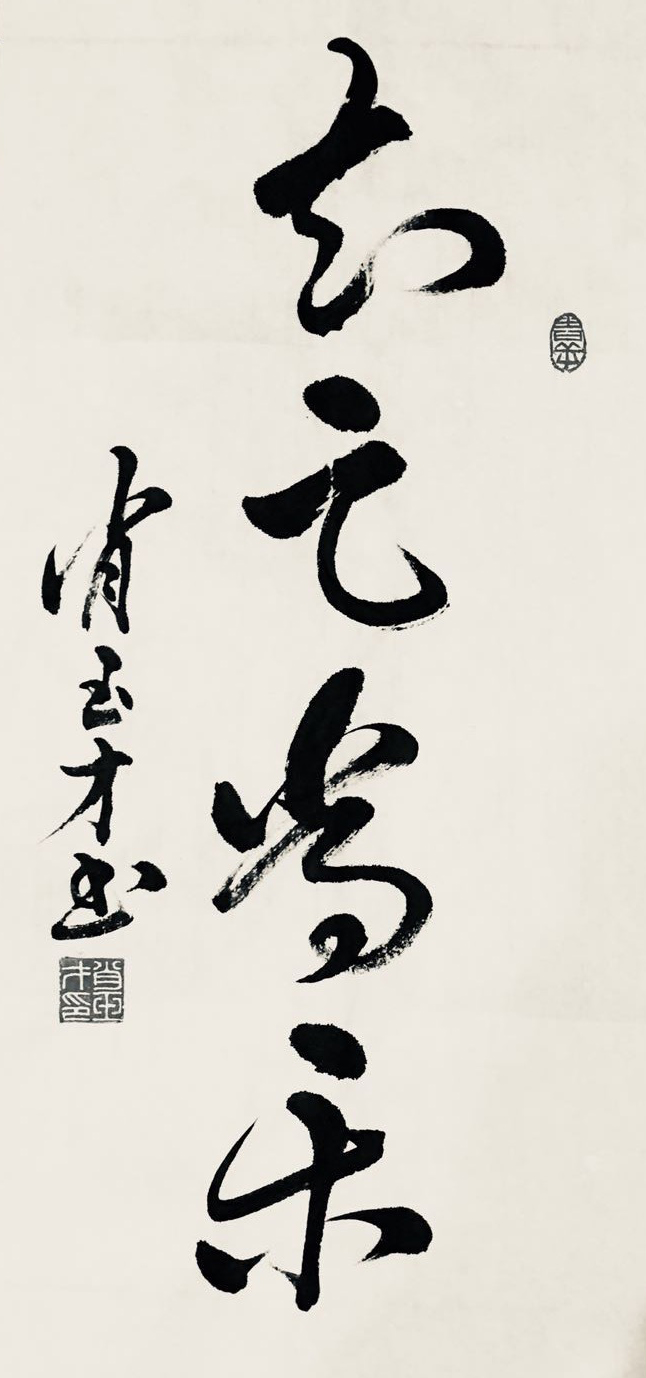 知足常乐
肖玉才书
肖玉才印